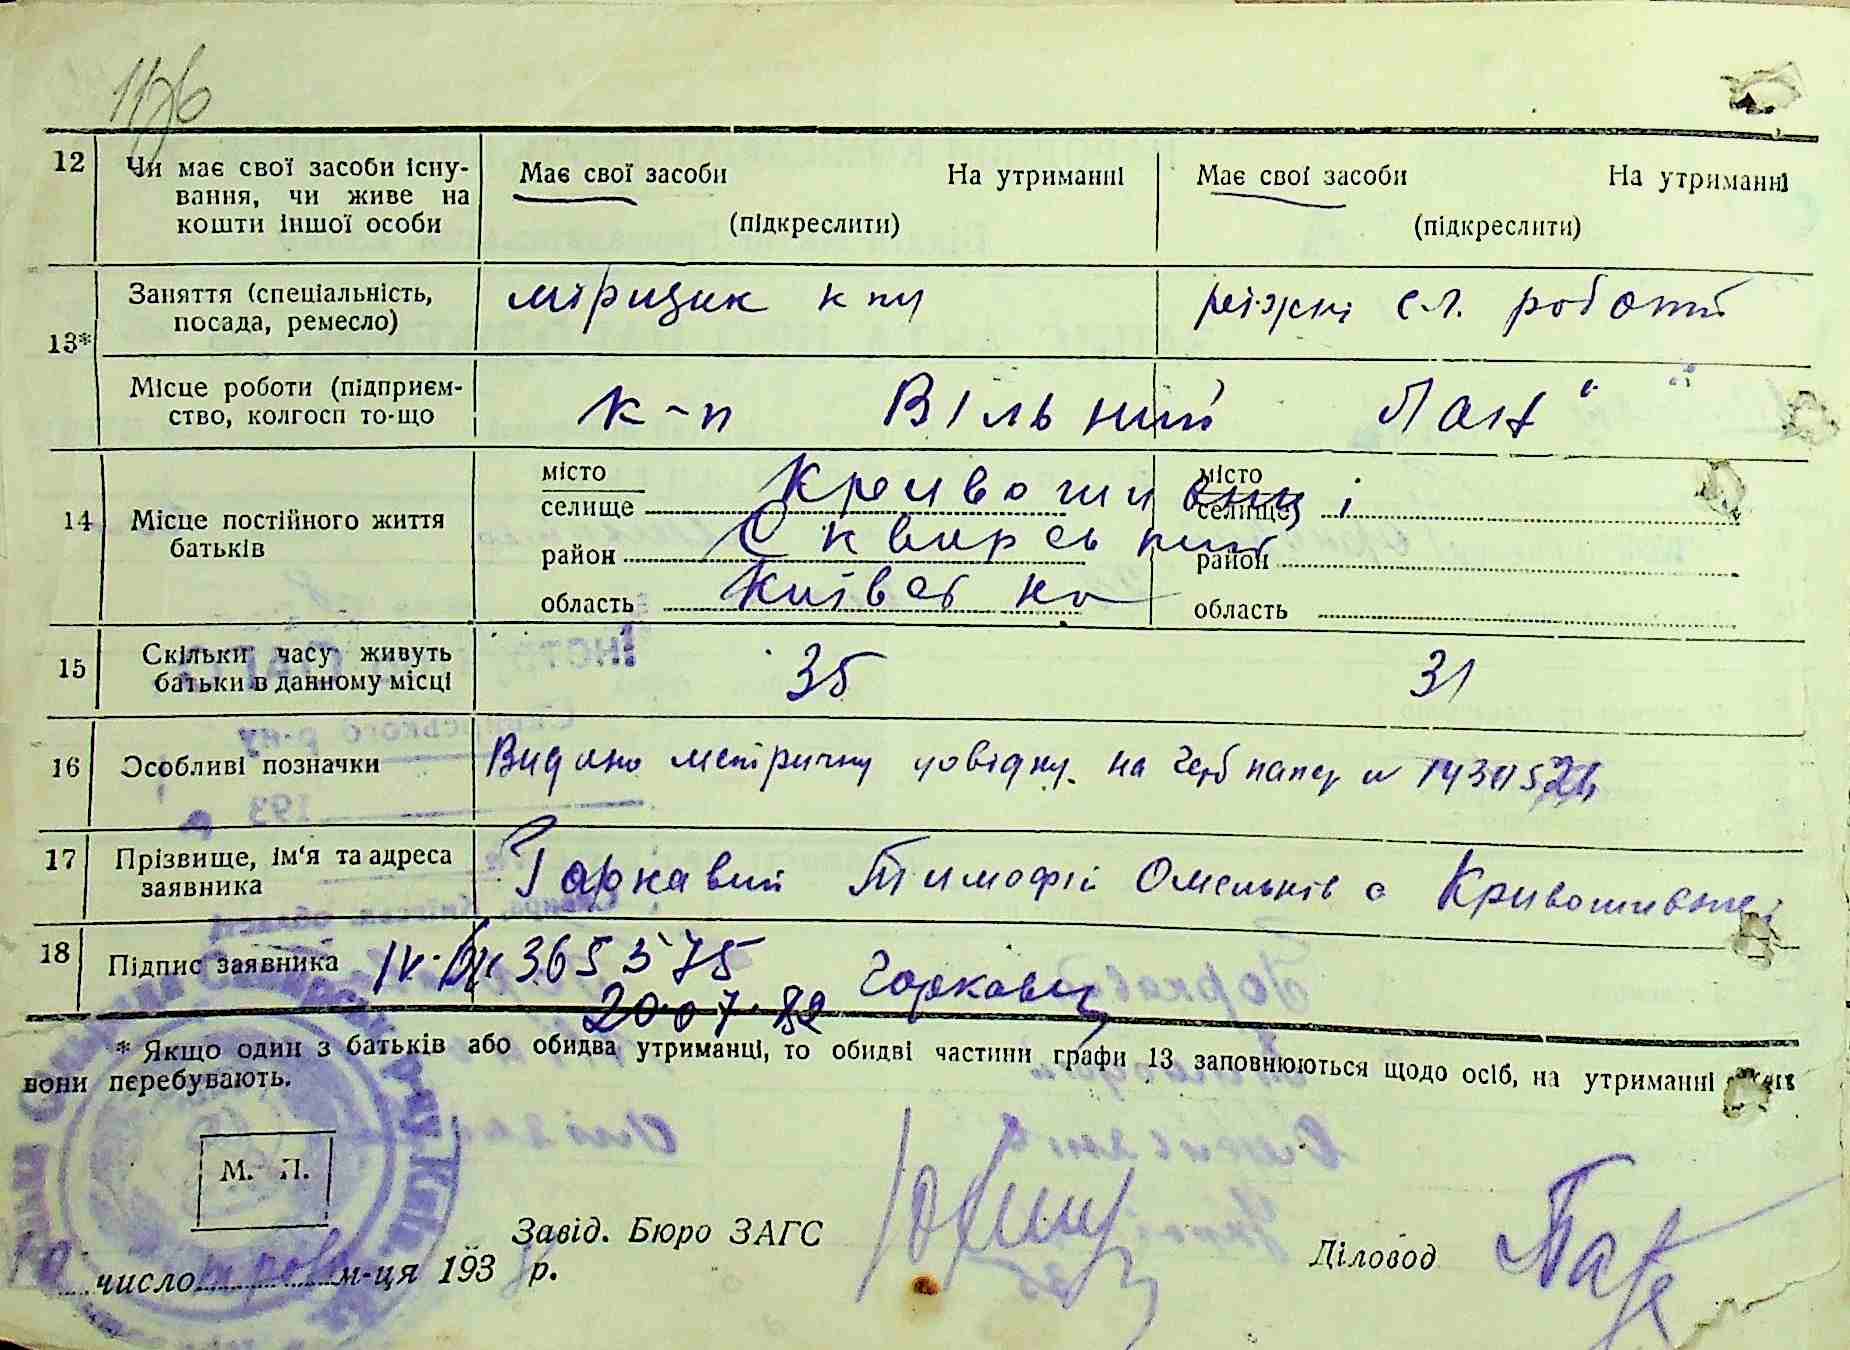 1176
12 Чи має свої засоби існу- Має свої засоби На утриманні Має свої засоби На утриманні
вання, чи живе на
кошти іншої особи (підкреслити) (підкреслити)
13* Заняття (спеціальність, мірщик різжні с.г. роботи
посада, ремесло)
Місце роботи (підприєм- к-п Вільний Лан"
ство, колгосп то-що
14 Місце постійного життя
батьків
місто місто
селище селище
район Сквирський район
область Київська область
15 Скільки часу живуть 35 31
батьки в данному місці
16 Особливі позначки Видано метричну довідку на герб папер №
17 Прізвище, ім'я та адреса Гаркавий Тимофій Омельків с
заявника
18 Підпис заявника 365375 Гаркавий
20.07.82
* Якщо один з батьків або обидва утриманці, то обидві частини графи 13 заповнюються щодо осіб, на утриманні яких
вони перебувають.
М. П.
Завід. Бюро ЗАГС
Діловод
10 число м-ця 193 р.